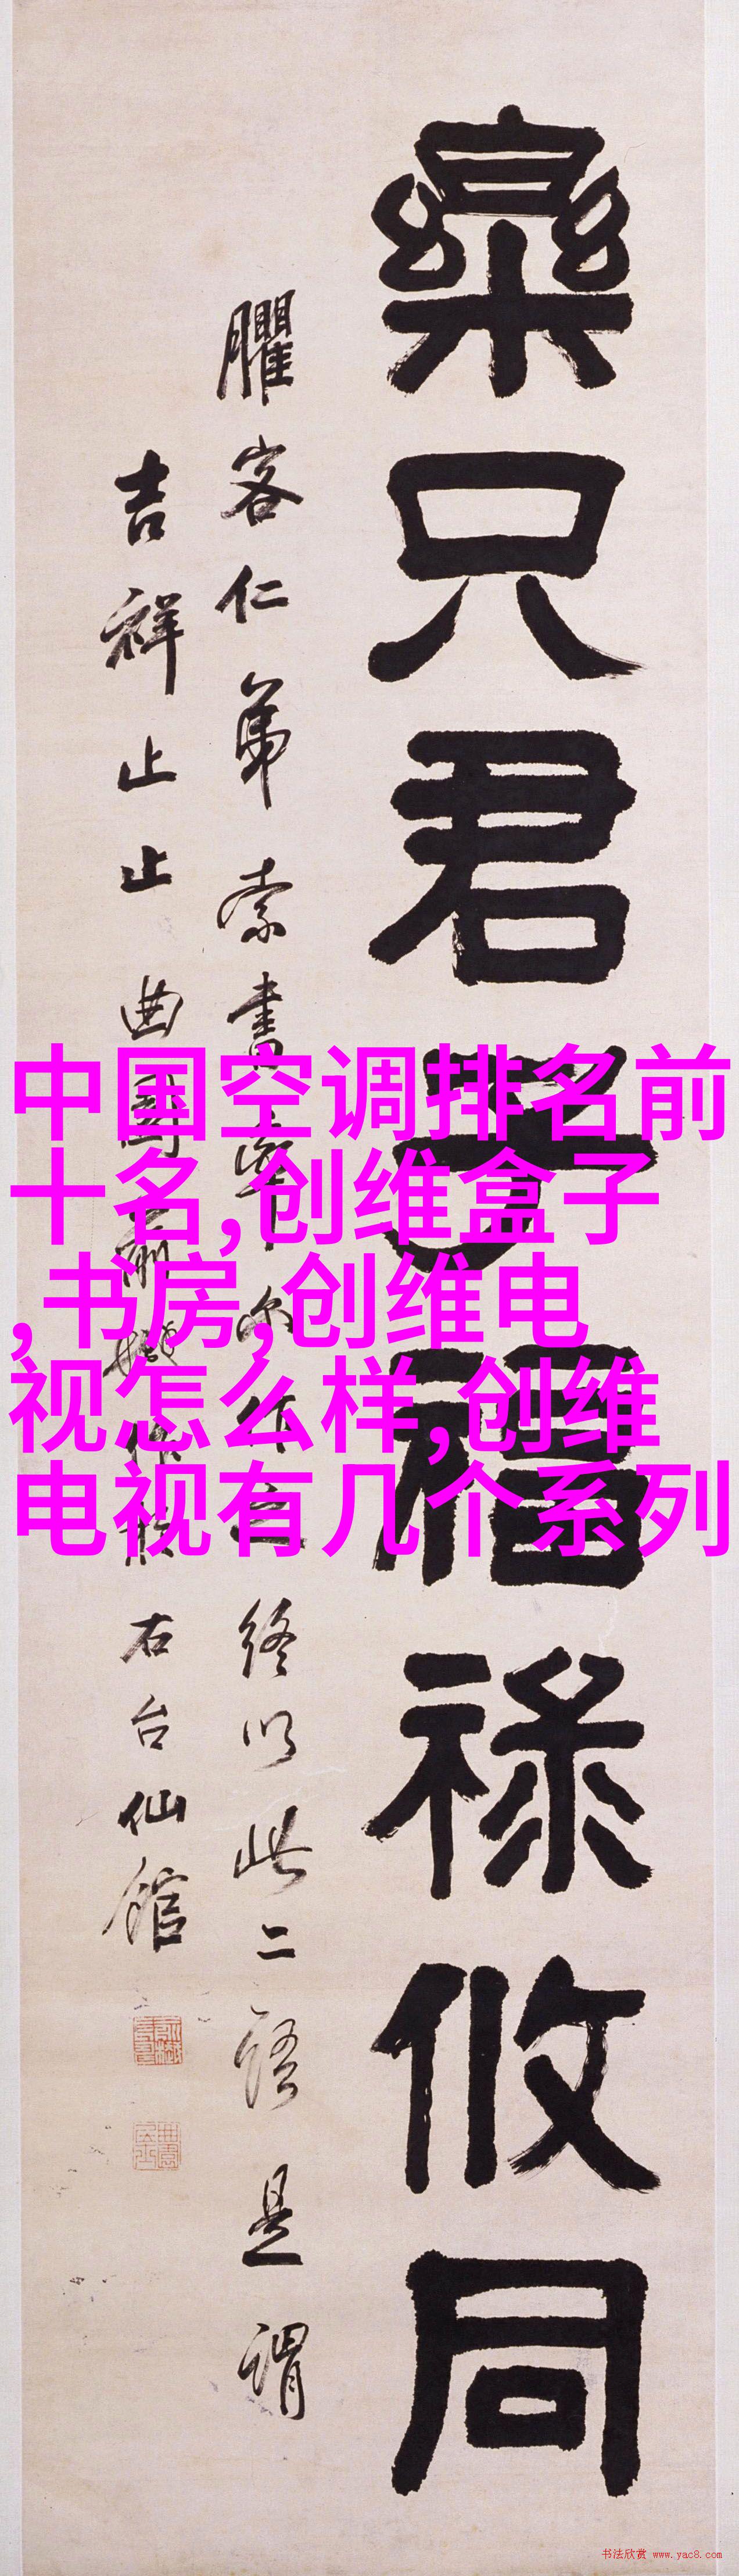 樂只君子福祿攸同
臞客仁弟索書率尔作之終以此二語是謂
吉祥止止曲園俞樾作於右台仙館
中国空调排名前
十名,创维盒子
,书房,创维电
视怎么样,创维
电视有几个系列
书法欣赏 www.yac8.com